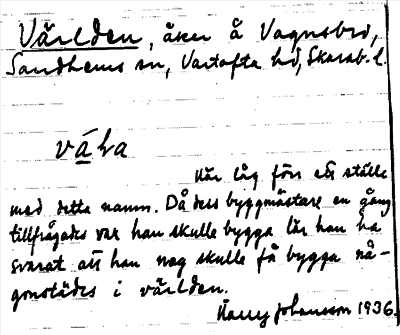 Världen, åker å Vagnsbro,
Sandhems sn, Vartofta hd, Skarab. l.
vála
Här låg förr ett ställe
med detta namn. Då dess byggmästare en gång
tillfrågades var han skulle bygga lär han ha
svarat att han nog skulle få bygga nå-
gonstädes i världen.
Harry Johansson 1936.